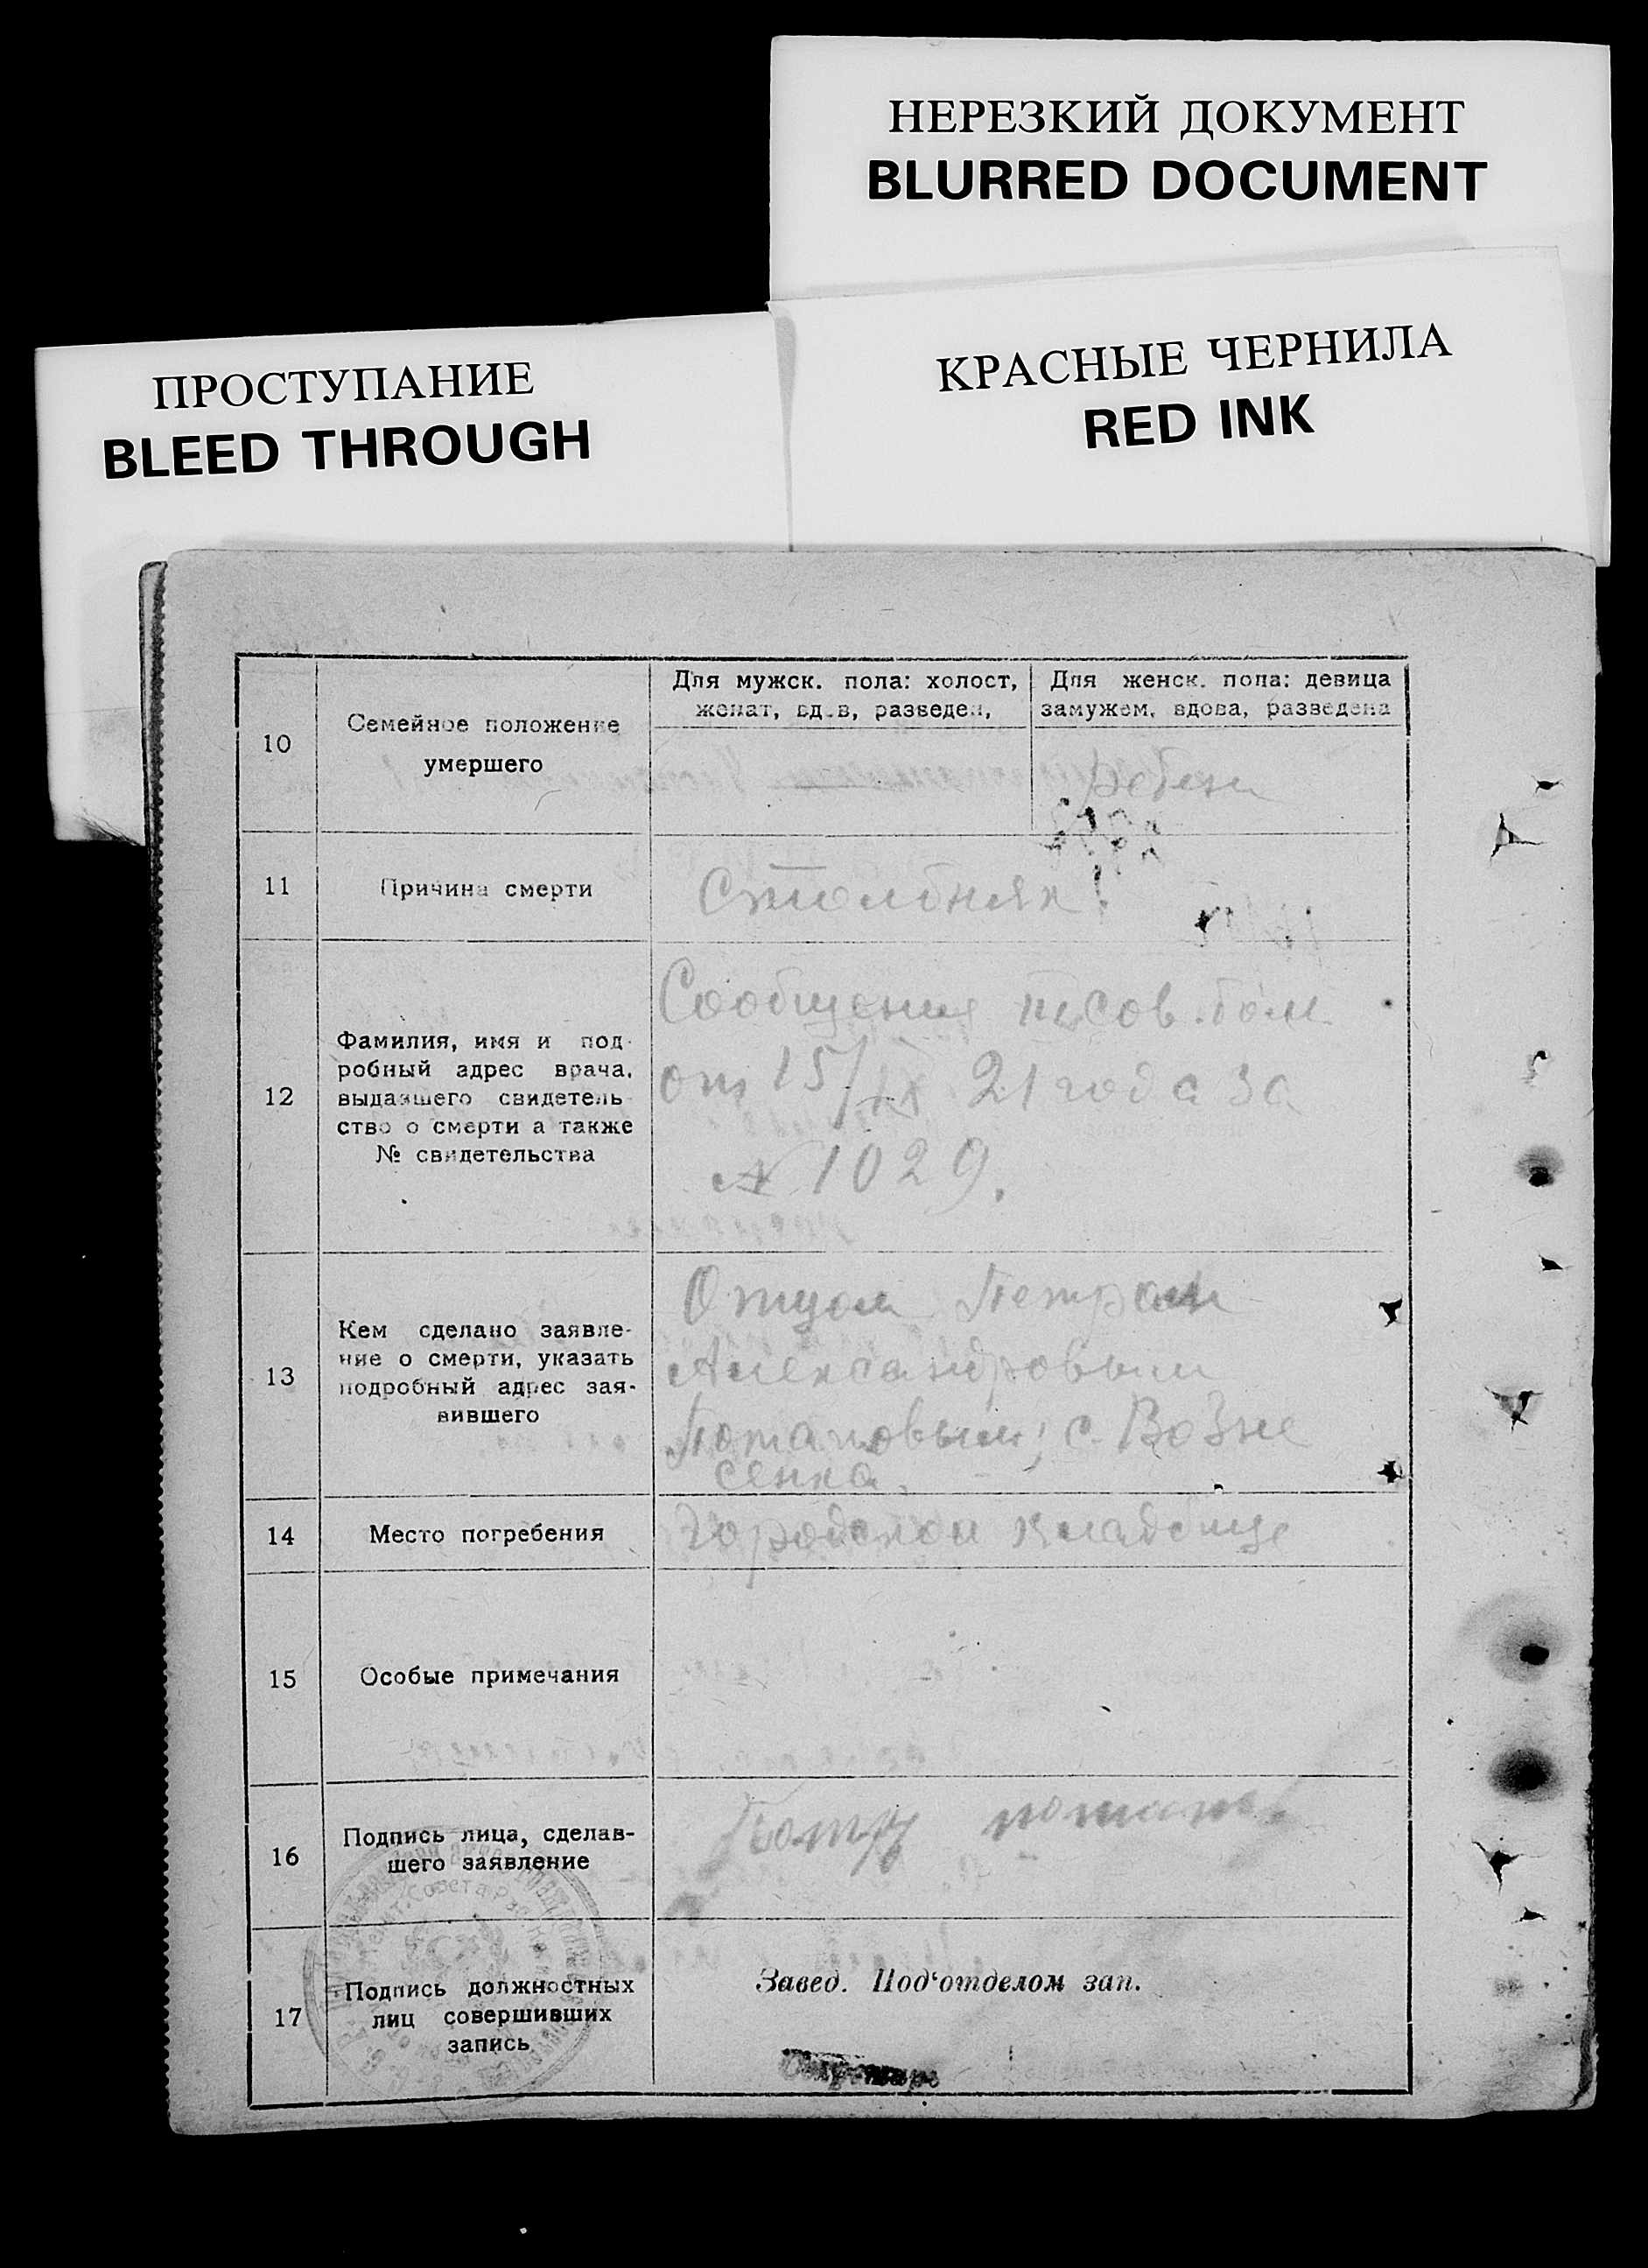 НЕРЕЗКИЙ ДОКУМЕНТ
BLURRED DOCUMENT
ПРОСТУПАНИЕ
BLEED THROUGH
КРАСНЫЕ ЧЕРНИЛА
RED INK
10
Семейное положение
умершего
Для мужск. пола: холост,
женат, вдов, разведен,
Для женск. пола: девица
замужем, вдова, разведена
11
Причина смерти
Столбняк
12
Фамилия, имя и под-
робный адрес врача,
выдавшего свидетель-
ство о смерти а также
№ свидетельства
Сообщение сов. бол.
от 15/IX 21 года за
№ 1029.
13
Кем сделано заявле-
ние о смерти, указать
подробный адрес зая-
вившего
Отцом Петром
Александровым
Потаповым, с. Возне
сенка.
14
Место погребения
Городском кладбище
15
Особые примечания
16
Подпись лица, сделав-
шего заявление
17
Подпись должностных
лиц совершивших
запись
Завед. Под‘отделом зап.